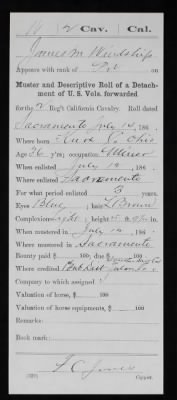 W | 2 Cav. | Cal.
James M
Appears with rank of Pvt on
Muster and Descriptive Roll of a Detach-
ment of U. S. Vols. forwarded
for the 2 Reg't California Cavalry. Roll dated
Sacramento July 14, 186 .
Where born Ohio
Age 36 y'rs; occupation Miner
When enlisted July 12, 186 .
Where enlisted Sacramento
For what period enlisted 3 years.
Eyes Blue; hair L Brown
Complexion Light; height 5 ft. in.
When mustered in July 14, 186 .
Where mustered in Sacramento
Bounty paid $ 100; due $ 100
Where credited
Company to which assigned
Valuation of horse, $ 100
Valuation of horse equipments, $ 100
Remarks:
Book mark:
F C Jones
Copyist.